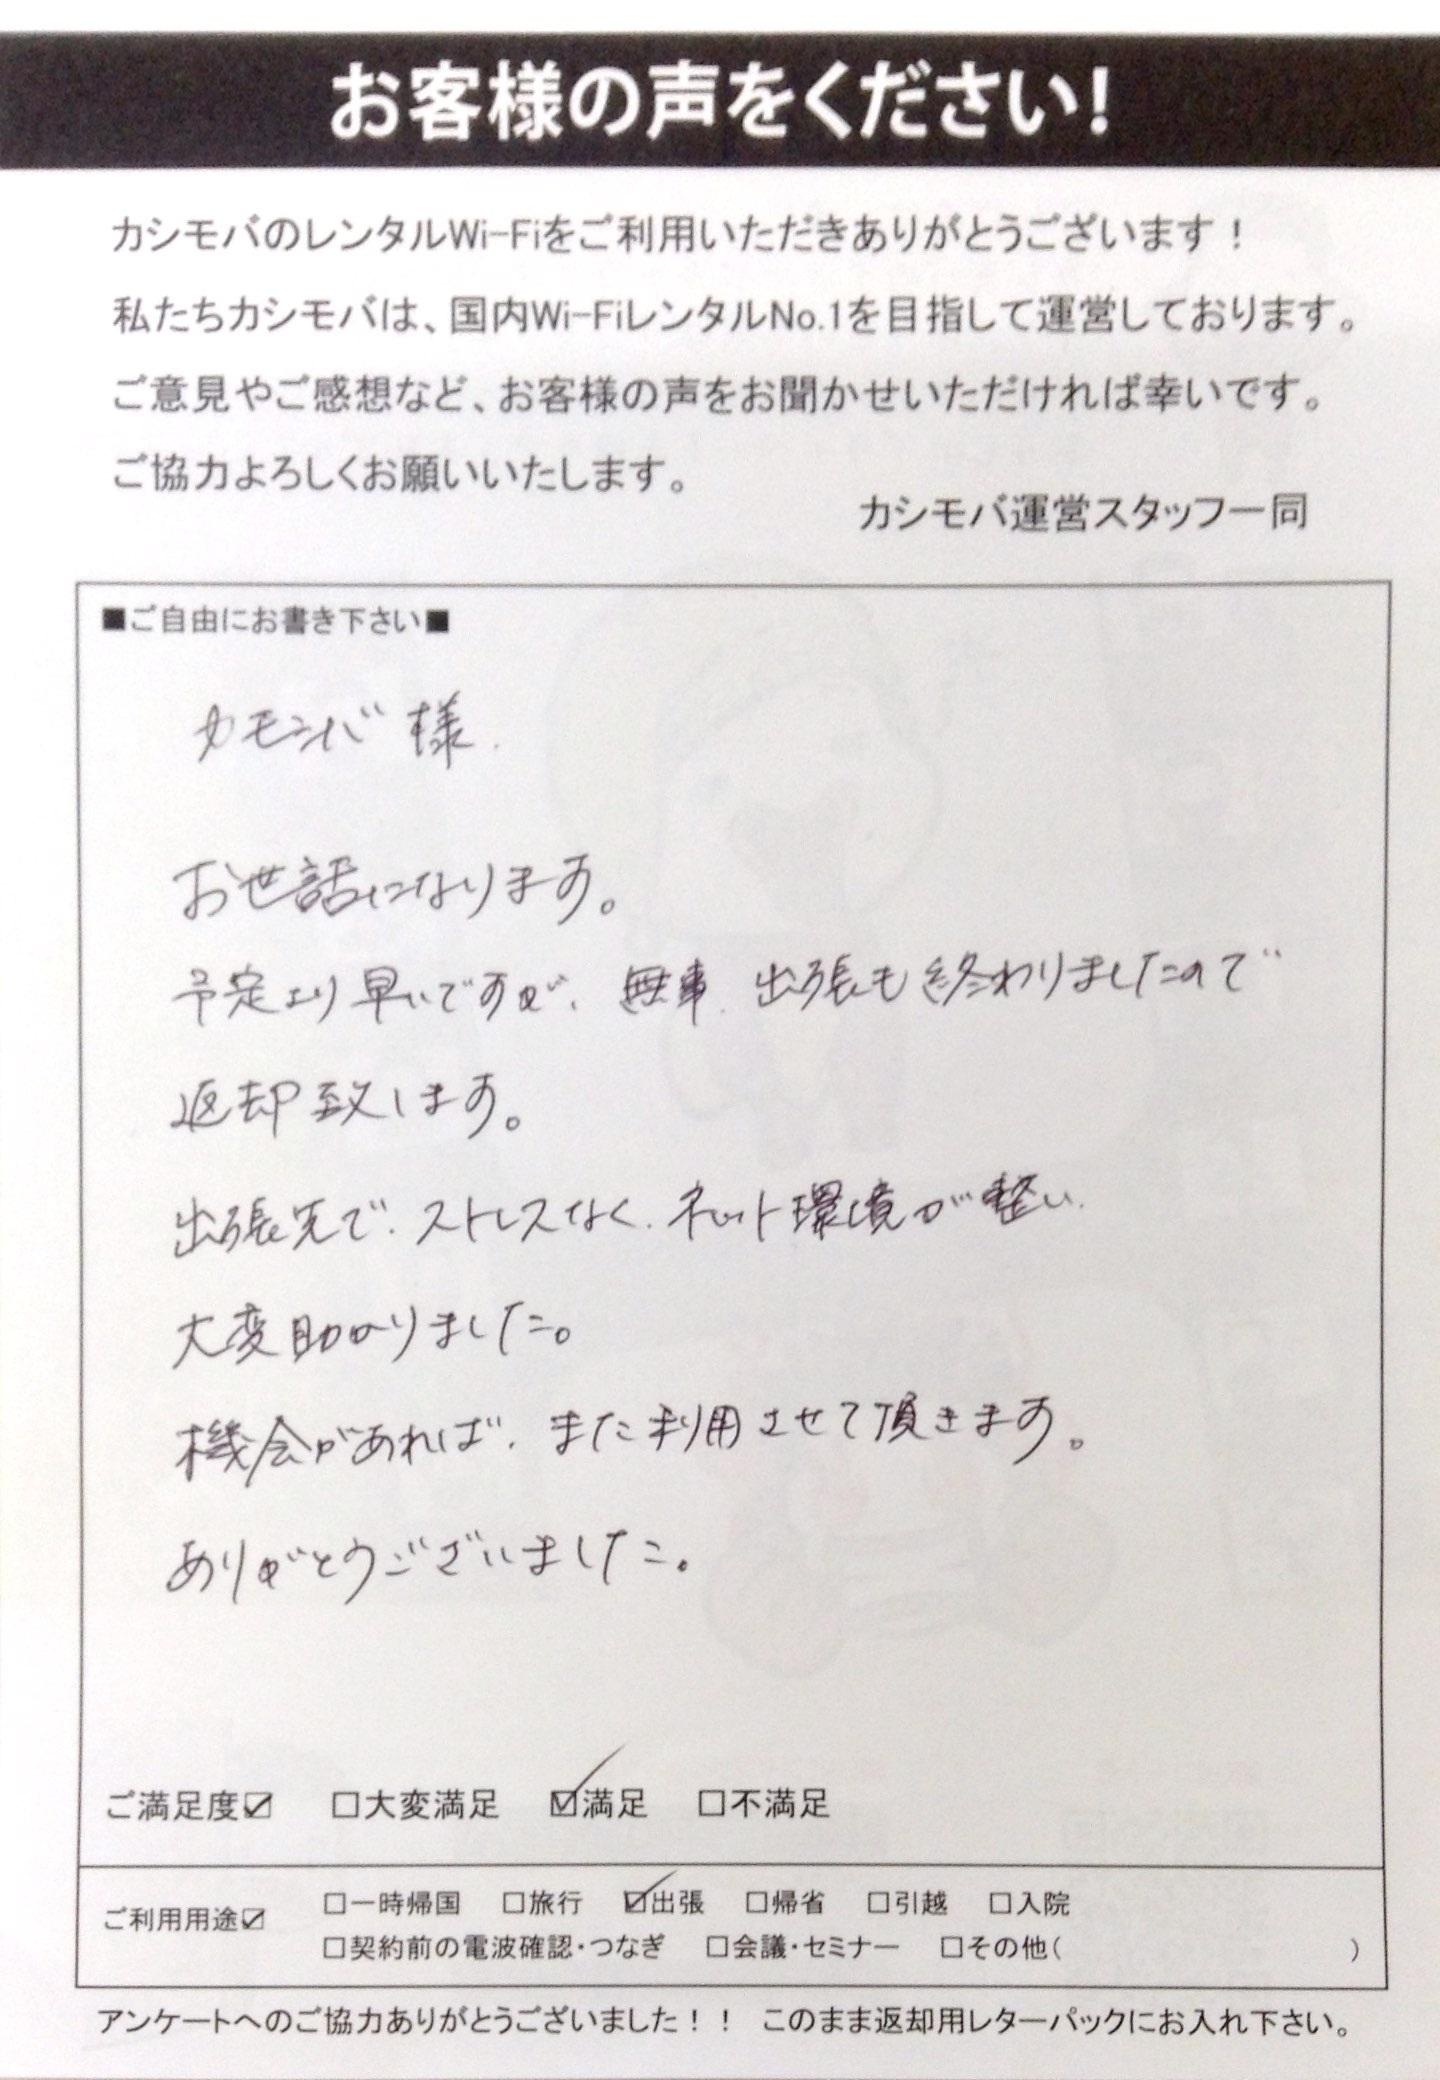 お客様の声をください!
カシモバのレンタルWi-Fiをご利用いただきありがとうございます！
私たちカシモバは、国内Wi-FiレンタルNo.1を目指して運営しております。
ご意見やご感想など、お客様の声をお聞かせいただければ幸いです。
ご協力よろしくお願いいたします。
カシモバ運営スタッフ一同
■ご自由にお書き下さい■
カモシバ 様.
お世話になります。
予定より早いですが、無事、出張も終わりましたので
返却致します。
出張先で、ストレスなく、ネット環境が整い、
大変助かりました。
機会があれば、また利用させて頂きます。
ありがとうございました。
ご満足度☑ □大変満足 ☑満足 □不満足
ご利用用途☑ □一時帰国 □旅行 ☑出張 □帰省 □引越 □入院
□契約前の電波確認・つなぎ □会議・セミナー □その他( )
アンケートへのご協力ありがとうございました！！ このまま返却用レターパックにお入れ下さい。